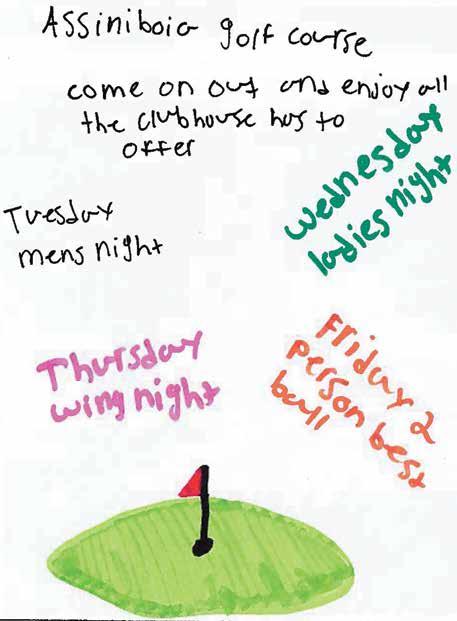 Assiniboia golf course
come on out and enjoy all
the clubhouse has to
offer
Tuesday
mens night
Wednesday
ladies night
Thursday
wing night
Friday 2
person best
ball